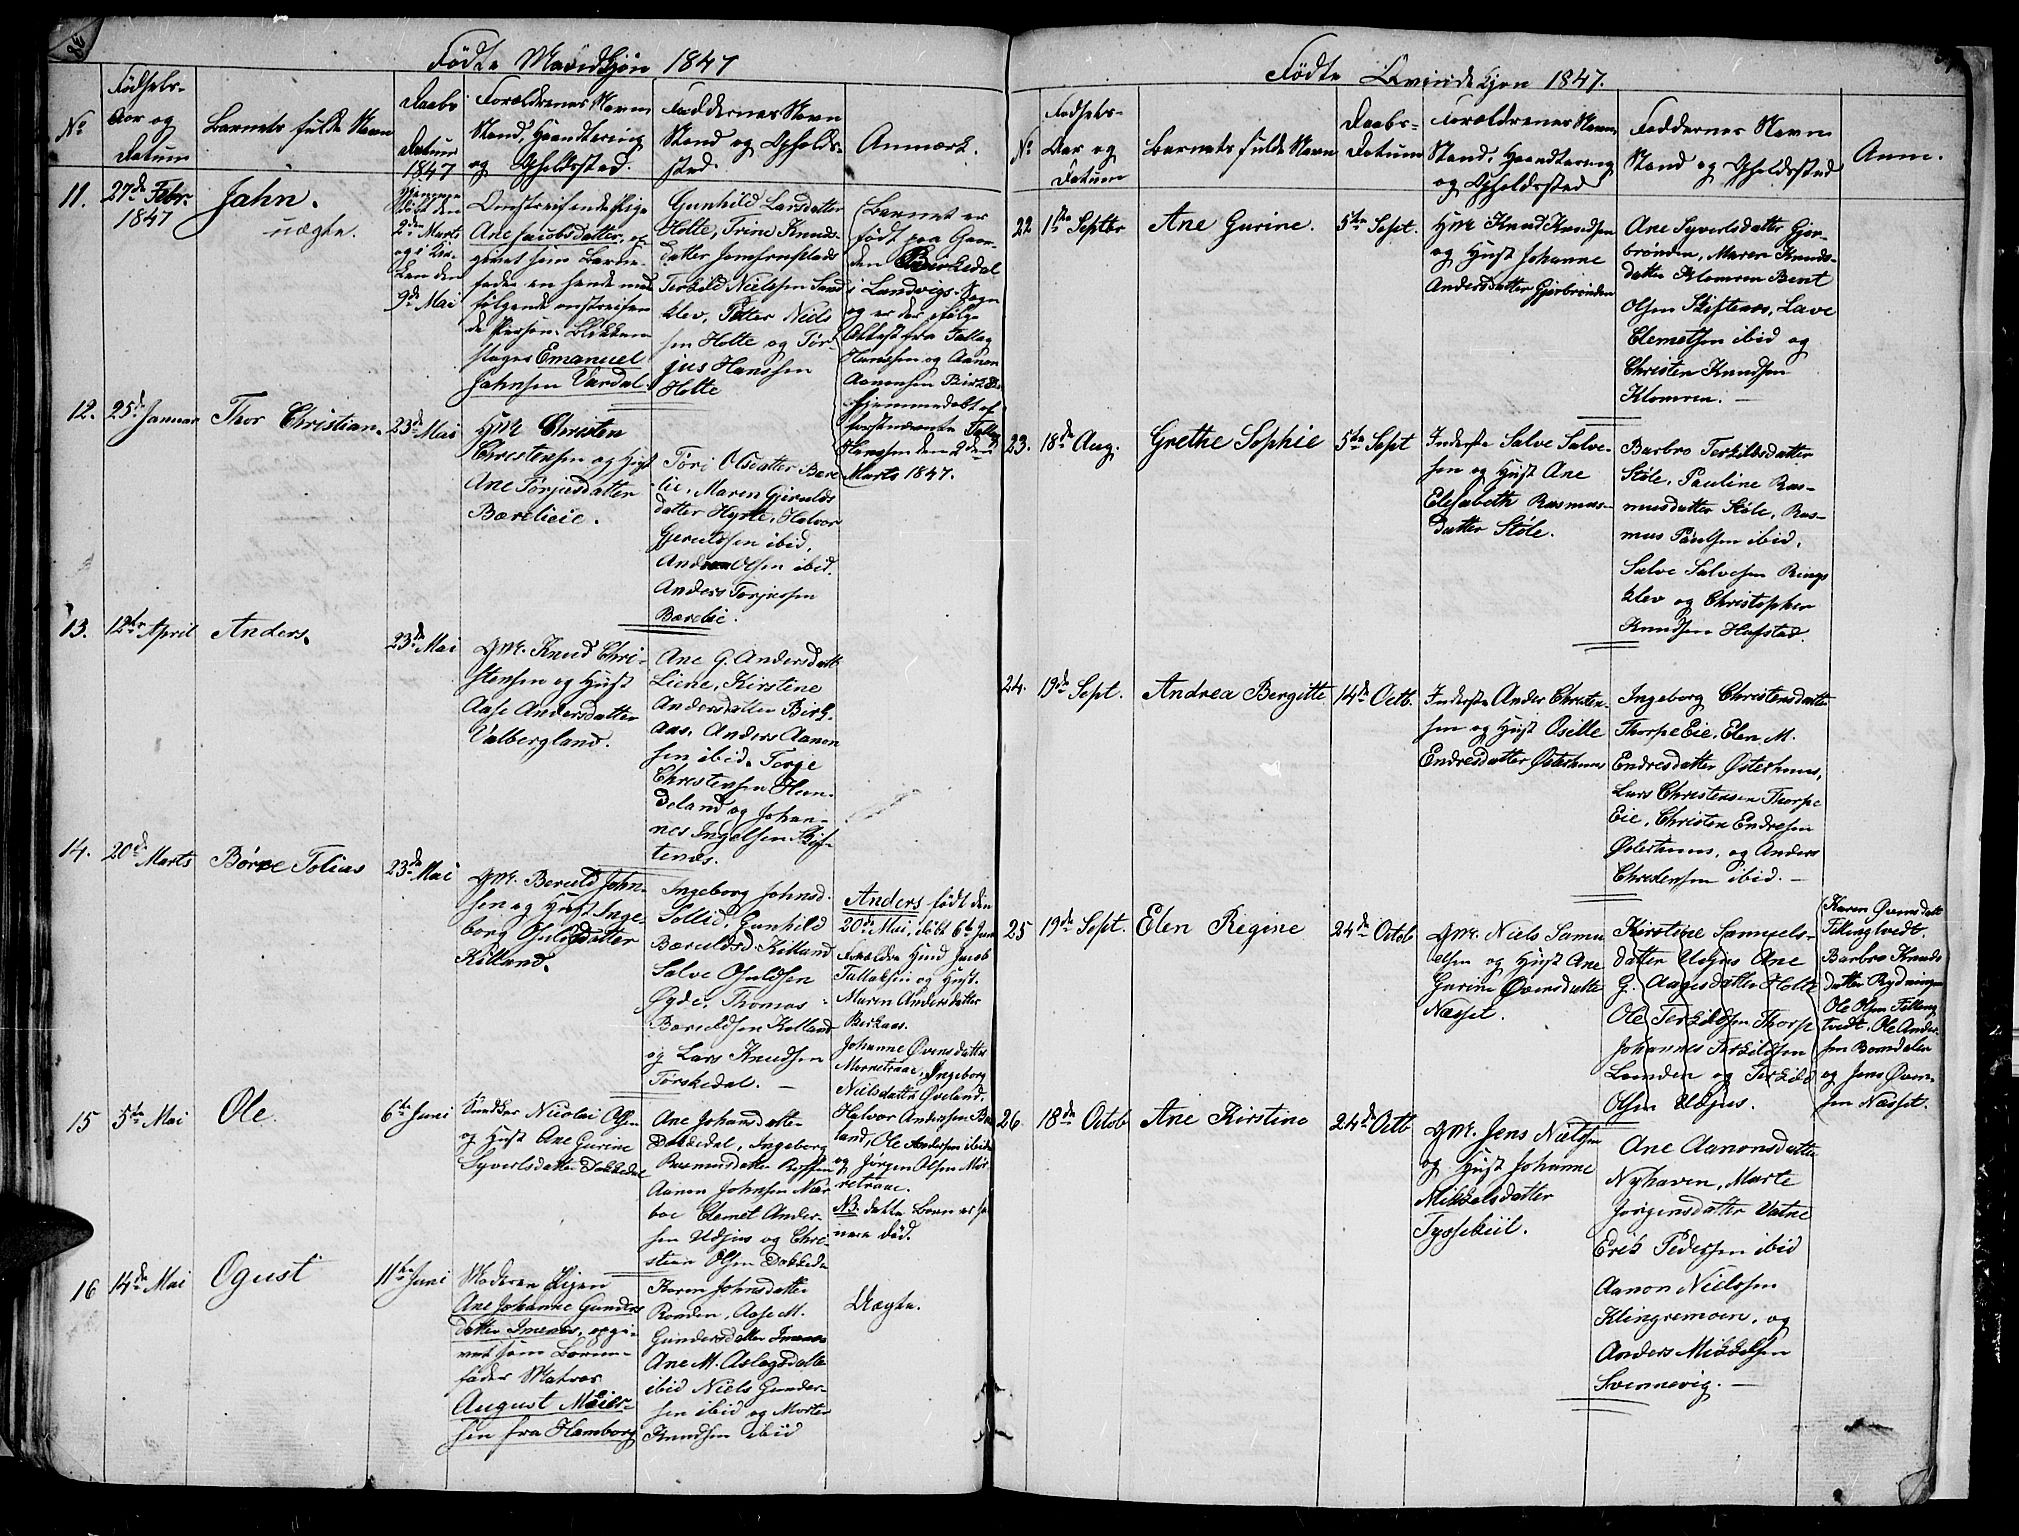 Fødte Mandkjøn 1847
No
Fødsels-
Aar og
Datum
Barnets fulde Navn
Daabs
Datum
1847
Forældrenes Navn,
Stand, Haandtering
og Opholdssted.
Faddernes Navn
Stand og Opholds-
sted.
Anmærk.
11.
27de Febr.
1847
Jahn.
uægte.
2den Marts
og i Kir-
ken den
9de Mai
Omstreifende Pige
Ane Jacobsdatter, op-
givet som Barne-
fader en hende med
følgende omstreifen
de Person. Blikken
slager Emanuel
Jahnsen Vardal.
Gunhild Larsdatter
Holte, Trine Knuds-
datter Jomfruplads
Terkild Nielssen Sand
klev, Petter Niels
sen Holte og Tør-
jus Hanssen
Holte
(Barnet er
født paa Gaar-
den Birkedal
i Landvigs Sogn
og er der ifølge
Attest fra Tallag
Hanssen og Aanon
Aanonsen Birkedal
hjemmedøbt af
forstnævnte Tallag
Hanssen den 2den
Marts 1847.
12.
25de Januar
Thor Christian.
23de Mai
Gm. Christen
Christensen og Hust
Ane Tørjusdatter
Bærelieie.
Tøri Olsdatter Bære
lie, Maren Gjeruldsdatter Hyrte, Halvor
Gjeruldsen ibid,
Andreas Olsen ibid.
Anders Torjussen
Bærelie.
13.
12te April
Anders.
23de Mai
Gm. Knud Chri-
stensen og Hust
Aase Andersdatter
Valbergland.
Ane G. Andersdatt.
Liene, Kirstine
Andersdatter Birk-
aas, Anders Aanon
sen ibid. Terge
Christensen Hom-
deland og Johan-
nes Ingelsen Skif-
tenæs.
14.
20de Marts
Børre Tobias
23de Mai
Gm. Beruld John-
sen og Hust Inge
borg Osuldsdatter
Kolland.
Ingeborg Johnsd.
Sollid, Gunhild
Bæruldsd. Kolland
Salve Osuldsen
Øyde, Thomas
Bæruldsen Kolland
og Lars Knudsen
Torskedal. —
Anders født den
20de Mai, døbt 6te Juni
Forældre Hmd Jacob
Tallaksen og Hust.
Maren Andersdatter
Birkaas.
Johanne Øvensdatter
Morretraae, Ingeborg
Nielsdatter Øveland,
Halvor Andersen Bie
land, Ole Andersen ibid
og Jørgen Olsen Mor
retraae.
NB. dette Barn er se
nere død.
15
5te Mai
Ole.
6te Juni
Nicolai Olsen
og Hust Ane Gurine
Syverts datter Dokkedal
Ane Johansdatter
Dokkedal, Ingeborg
Rasmusdatter
Aanon Johnsen Nær
boe Clemet Ander-
sen Udjus og Chri-
stian Olsen Dokkeda
16
14de Mai
Ogust
11te Juni
Moderen Pigen
Ane Johanne Gunders
datter Imenæs, opgi-
vet som Barne-
fader Matros
August Meier-
sen fra Hamborg
Karen Johnsdatter
Ronden, Aase M.
Gundersdatter Imenæs
Ane M. Aslagsdatter
ibid Niels Gunder-
sen ibid og Morten
Knudsen ibid
Uægte.
Fødte Qvindekjøn 1847.
No
Fødsels-
Aar og
Datum
Barnets fulde Navn
Daabs-
Datum
Forældrenes Navn,
Stand, Haandtering
og Opholdssted
Faddernes Navn
Stand og Opholdssted
Anm.
22
1ste Septbr
Ane Gurine.
5te Sept.
Gm Knud Knudsen
og Hust Johanne
Andersdatter Gjærbrønden
Ane Syvertsdatter Gjær-
brønden, Maren Knuds-
datter Klomren Bent
Olsen Skiftenæs, Lave
Clemetsen ibid og
Christen Knudsen
Klomren. —
23.
18de Aug.
Grethe Sophie
5te Sept
Inderste Salve Salve-
sen og Hust Ane
Elesabeth Rasmus-
datter Støle.
Barbro Terkildsdatter
Støle, Pauline Ras-
musdatter Støle, Ras-
mus Paulsen ibid,
Salve Salvesen Rings
klev og Christopher
Knudsen Hafstad.
24.
19de Sept.
Andrea Bergitte
14de Octb.
Inderste Ander Christen-
sen og Hust Oselle
Endresdatter Østerhuus
Ingeborg Christensdatter
Thorpe Eie, Elen M.
Endresdatter Østerhuus,
Lars Christensen Thorpe
Eie, Christen Endresen
Østerhuus, og Anders
Christensen ibid. —
25
19de Sept.
Elen Regine
24de Octob
Gm. Niels Samu
elsen og Hust Ane
Gurine Øvensdatter
Næsset.
Kirstine Samuels-
datter Udjus Ane
G. Aagesdatter Holte
Ole Terkildsen Thorpe
Johannes Terkildsen
Lunden og Terkild
Olsen Udjus.
(Karen Øvensdatt
Fillingtvedt.
Barbro Knuds
datter Rydningen
Ole Olsen Filling
tvedt, Ole Ander-
sen Bomdalen
og Jens Øven-
sen Næsset.
26.
18de Octob
Ane Kirstine
24de Octb
Gm. Jens Nielsen
og Hust Johanne
Mikkelsdatter
Tyssekiil.
Ane Aanonsdatter
Nyhaven, Marte
Jørgensdatter Vatne
Erik Pedersen ibid
Aanon Nielssen
Klingremoen, og
Anders Mikkelsen
Svennevig. —